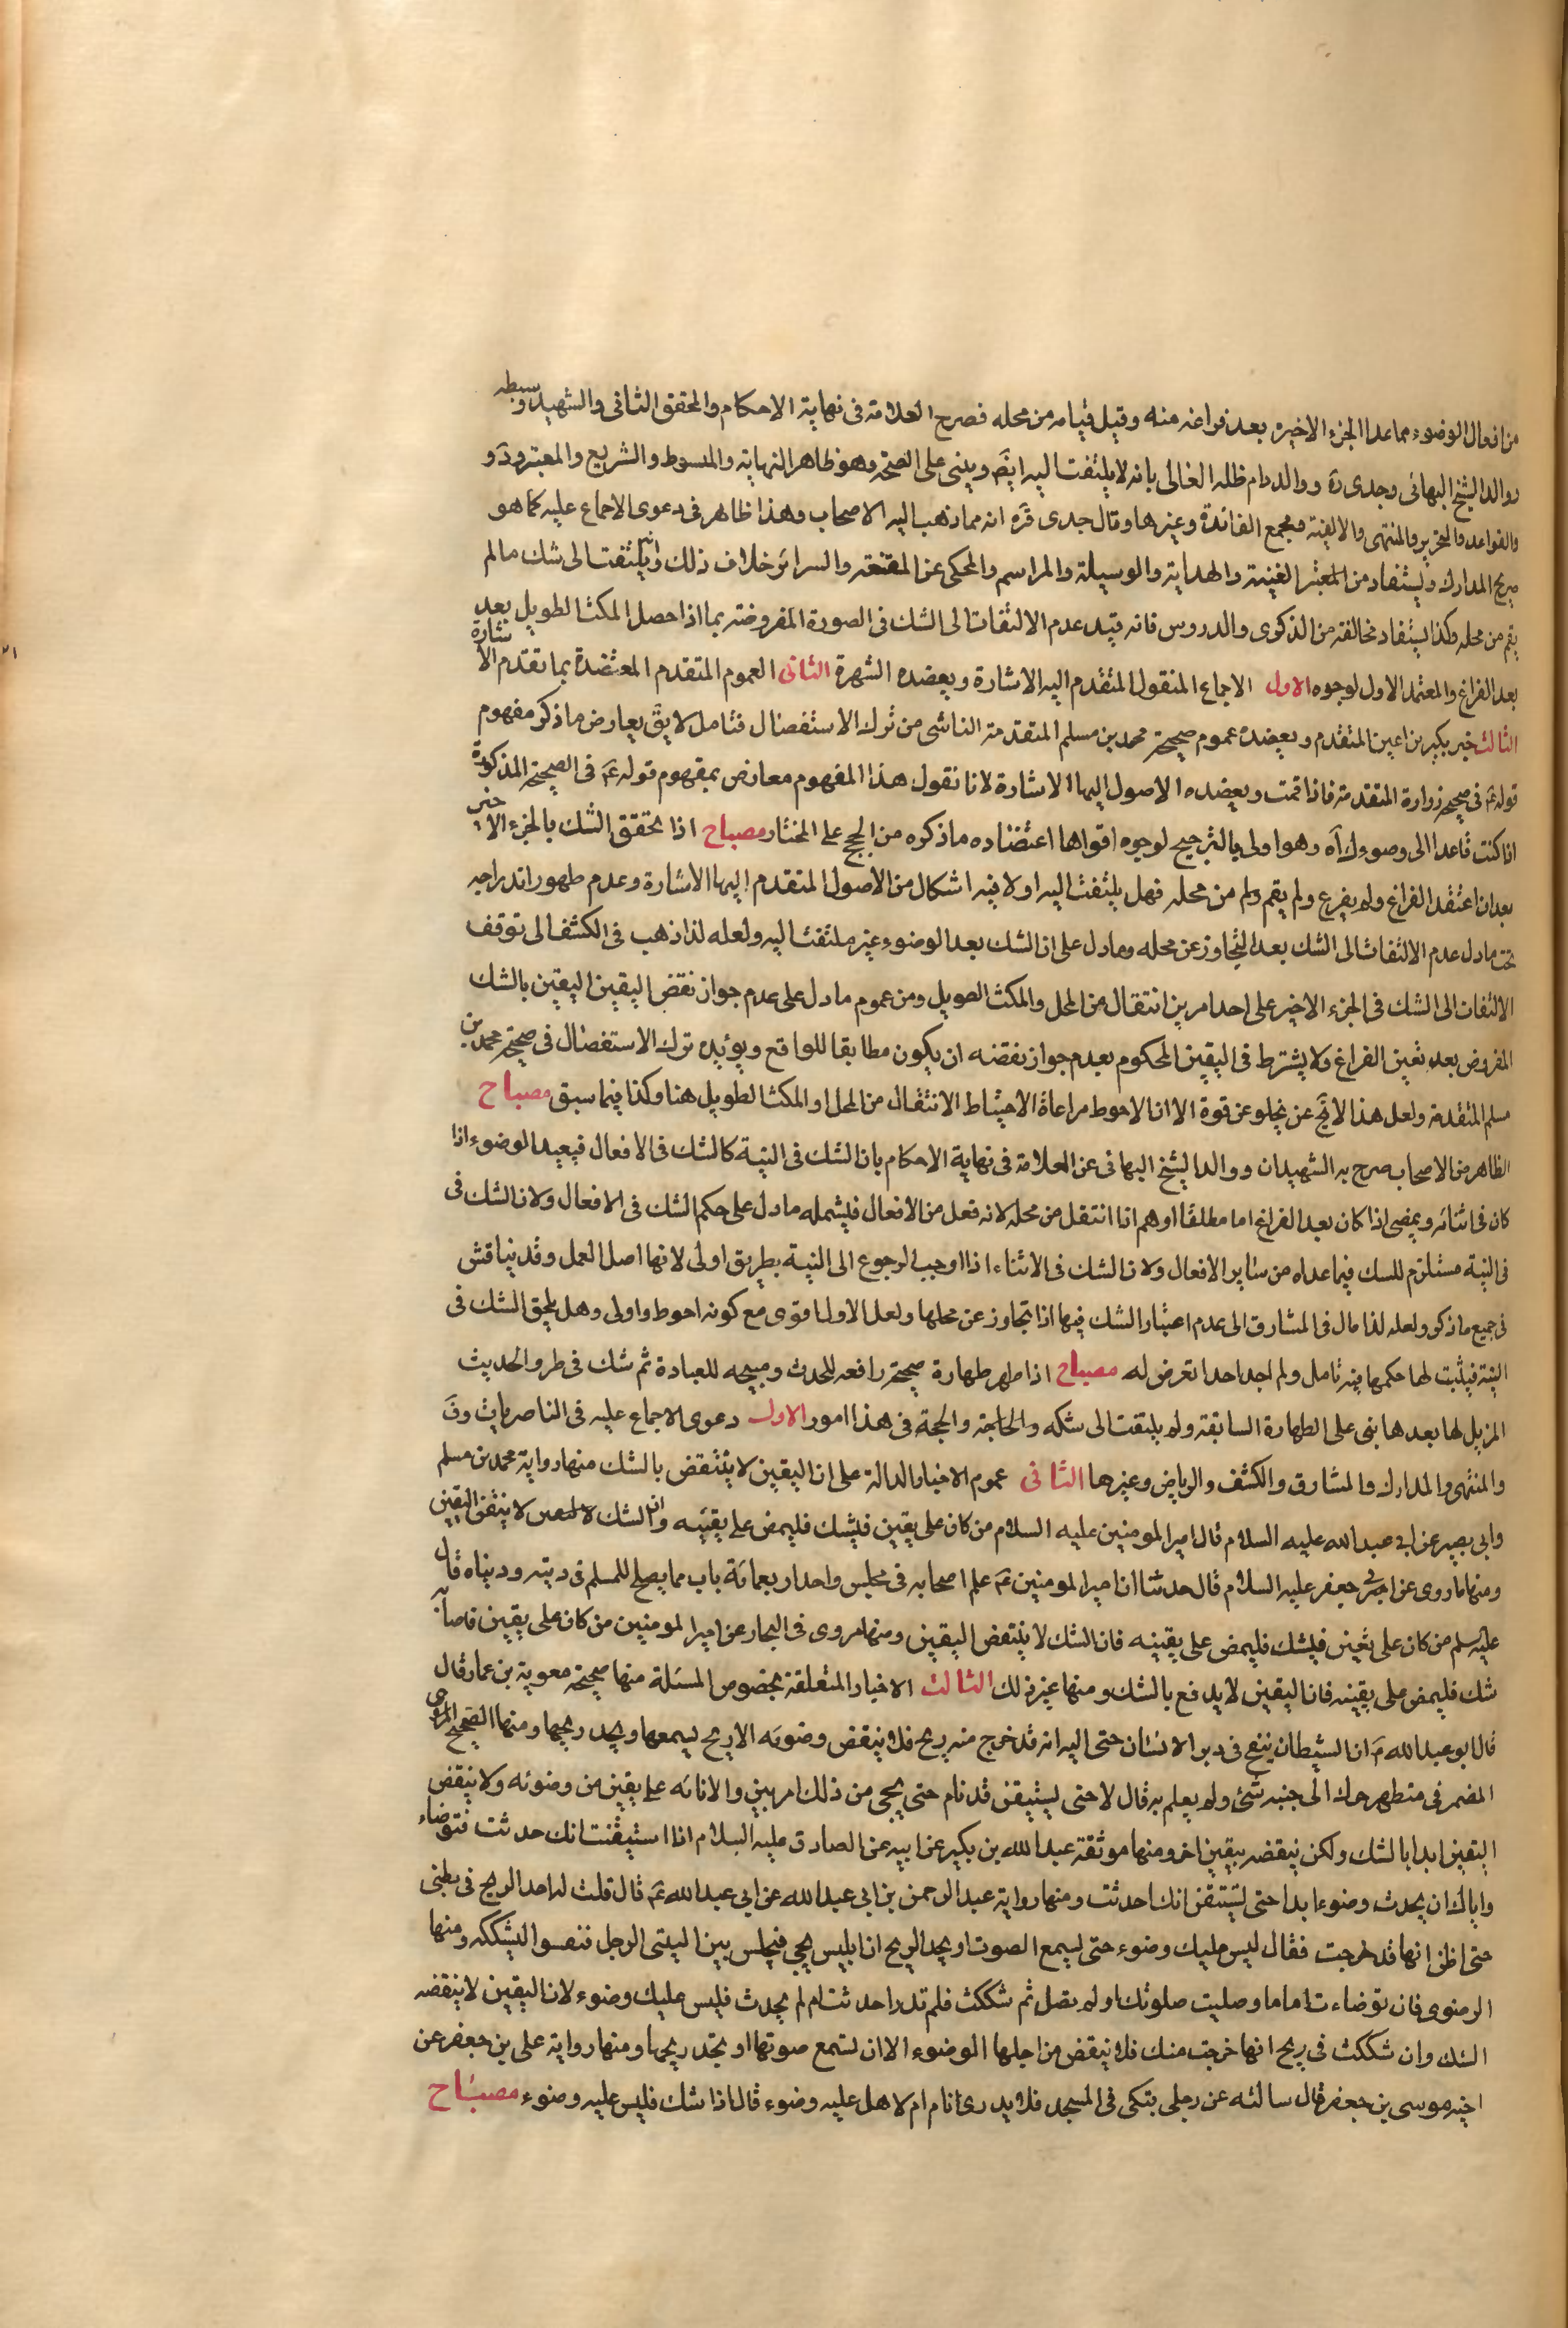 من افعال الوضوء مما عدا الجزء الاخير بعد فراغه منه وقبل قيامه من محله فصرح العلامة فى نهاية الاحكام والمحقق الثانى والشهيد وسبطه
ووالد الشيخ البهائى وجدى ره ووالد دام ظله العالى بانه لا يلتفت اليه ايضَ ويبنى على الصحة وهو ظاهر النهاية والمبسوط والشريع والمعتبر ودَ و
والقواعد والتحرير والمنتهى والالفية ومجمع الفائدة وغيرها وقال جدى قرَه انه مما ذهب اليه الاصحاب وهذا ظاهر فى دعوى الاجماع عليه كما هو
صريح المدارك ويستفاد من المعتبر الغنية والهداية والوسيلة والمراسم والمحكى عن المقنعة والسرائر خلاف ذلك وانه يلتفت الى شك ما لم
يقم من محله وكذا يستفاد مخالفته من الذكرى والدروس فانه قيد عدم الالتفات الى الشك فى الصورة المفروضة بما اذا حصل المكث الطويل بعد
بعد الفراغ والمعتمد الاول لوجوه الاول الاجماع المنقول المتقدم اليه الاشارة ويعضده الشهرة الثانى العموم المتقدم المعتضدة بما تقدم الاشارة
الثالث خبر بكير بن اعين المتقدم ويعضده عموم صحيحة محمد بن مسلم المتقدمة الناشى من ترك الاستفصال فتامل لا يقَ يعارض ما ذكر مفهوم
قوله عَ فى صحيحة زرارة المتقدمة فاذا قمت ويعضده الاصول اليها الاشارة لانا نقول هذا المفهوم معارض بمفهوم قوله عَ فى الصحيحة المذكورة
اذا كنت قاعدا الى وضوءك آه وهو اولى بالترجيح لوجوه اقواها اعتضاده ما ذكره من الحجج على المختار مصباح اذا تحقق الشك بالجزء الاخير
بعد ان اعتقد الفراغ ولم يفرع ولم يقم ولم من محله فهل يلتفت اليه او لا فيه اشكال من الاصول المتقدم اليها الاشارة وعدم ظهور اندراجه
تحت ما دل عدم الالتفات الى الشك بعد التجاوز عن محله وما دل على ان الشك بعد الوضوء غير ملتفت اليه ولعله لذا ذهب فى الكشف الى توقف
الالتفات الى الشك فى الجزء الاخير على احد امرين انتقال من المحل والمكث الطويل ومن عموم ما دل على عدم جواز نقض اليقين اليقين بالشك
المفروض بعد تعين الفراغ ولا يشترط فى اليقين المحكوم بعدم جواز نقضه ان يكون مطابقا للواقع ويؤيده ترك الاستفصال فى صحيحة محمد بن
مسلم المتقدمة ولعل هذا لا يخَ عن يخلو عن قوة الا ان الاحوط مراعاة الاحتياط الانتقال من المحل او المكث الطويل هنا وكذا فيما سبق مصباح
الظاهر من الاصحاب صرح به الشهيدان ووالد الشيخ البهائى عن العلامة فى نهاية الاحكام بان الشك فى النية كالشك فى الافعال فيعيد الوضوء اذا
كان فى اثنائه ويمضى اذا كان بعد الفراغ اما مطلقا او هم اذا انتقل من محله لانه فعل من الافعال فليشمله ما دل على حكم الشك فى الافعال ولان الشك فى
فى النية مستلزم للسك فيما عداه من ساير الافعال ولان الشك فى الاثناء اذا اوجب الرجوع الى النية بطريق اولى لانها اصل العمل وقد يناقش
فى جميع ما ذكر ولعله لذا مال فى المشارق الى عدم اعتبار الشك فيها اذا تجاوز عن محلها ولعل الاول اقوى مع كونه احوط واولى وهل يلحق الشك فى
النية فيثبت لها حكمها فيه تامل ولم اجد احدا تعرض له مصباح اذا طهر طهارة صحيحة رافعه للحدث ومبيحه للعبادة ثم شك فى طرو الحديث
المزيل لها بعدها بنى على الطهارة السابقة ولم يلتفت الى شكه والحاجة والحجة فى هذا امور الاول دعوى الاجماع عليه فى الناصريات وفَ
والمنتهى والمدارك والمشارق والكشف والرياض وغيرها الثانى عموم الاخبار الدالة على ان اليقين لا ينتقض بالشك منها رواية محمد بن مسلم
وابى بصير عن ابى عبد الله عليه السلام قال امير المومنين عليه السلام من كان على يقين فليشك فليمض على يقينه وان الشك لا ينقض اليقين
ومنها ما روى عن ابى جعفر عليه السلام قال حدثنا ان امير المومنين عَ علم اصحابه فى مجلس واحد اربعمائة باب مما يصلح للمسلم فى دينه ودنياه قال
عليه سلم من كان على يقين فليشك فليمض على يقينه فان الشك لا ينتقض اليقين ومنها مروى فى البحار عن امير المومنين من كان على يقين فاصابه
شك فليمض على يقينه فان اليقين لا يدفع بالشك ومنها غير ذلك الثالث الاخبار المتعلقة بخصوص المسئلة منها صحيحة معوية بن عمار قال
قال ابو عبد الله عَ ان الشيطان ينفح فى دبر الانسان حتى اليه انه قد خرج منه ريح فلا ينقض وضوئه الا ريح ليسمعها ويجد ريحها ومنها الصحيح المروى
المضمر فى متطهر حرك الى جنبه شئ ولم يعلم به قال لا حتى يستيقن قد نام حتى يجى من ذلك امر بين والا فانه على يقين من وضوئه ولا ينقض
اليقين ابدا بالشك ولكن ينقضه بيقين اخر ومنها موثقة عبد الله بن بكير عن ابيه عن الصادق عليه السلام اذا استيقنت انك حدثت فتوضاء
واياك ان يحدث وضوءا بدا حتى تستيقن انك احدثت ومنها رواية عبد الرحمن بن ابى عبد الله عن ابى عبد الله عَ قال قلت له اجد الريح فى بطنى
حتى اظن انها قد خرجت فقال ليس عليك وضوء حتى ليسمع الصوت او يجد الريح ان ابليس يجى فيجلس بين اليتى الرجل فنفسوا ليشككه ومنها
الرضوى فان توضاءت اماما وصليت صلوتك او لم تصل ثم شككت فلم تدر احدثت ام لم يحدث فليس عليك وضوء لان اليقين لا ينقضه
الشك وان شككت فى ريح انها خرجت منك فلا ينقض من اجلها الوضوء الا ان لستمع صوتها او تجد ريحها ومنها رواية على بن جعفر عن
اخيه موسى بن جعفر قال سالته عن رجلى يتكى فى المسجد فلا يدرى نام ام لا هل عليه وضوء قال اذا شك فليس عليه وضوء مصباح